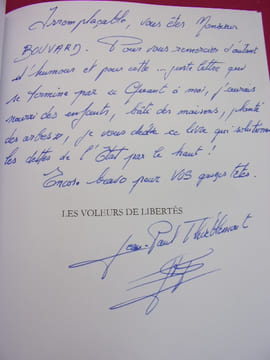 Irremplaçable, vous êtes Monsieur
BOUVARD. Pour vous remercier d'autant
d'humour et pour cette ... juste lettre qui
se termine par ce Quant à moi, j'aurais
nourri des enfants, bâti des maisons, planté
des arbres, je vous dédie ce livre qui solutionne
les dettes de l'Etat par le haut !
Encore bravo pour VOS
LES VOLEURS DE LIBERTÉS
Jean-Paul